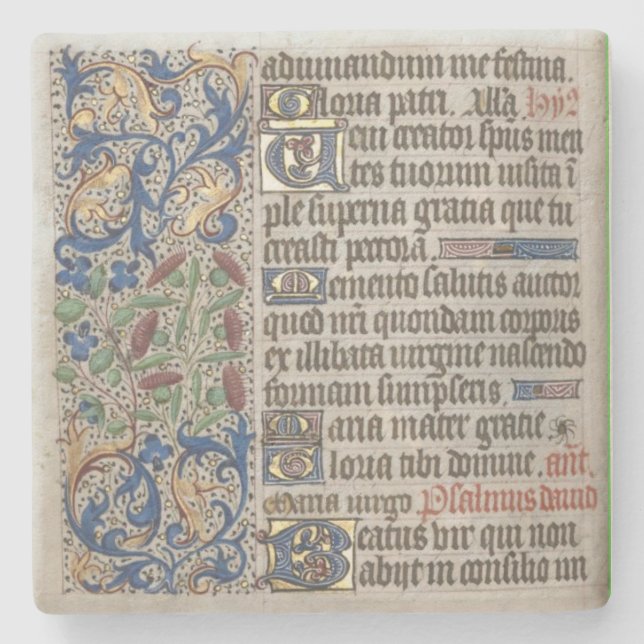 adiuuandum me festina.
Gloria patri. All'a hyᵒ
Ueni creator spus men
tes tuorum visita ī
ple superna gratia que tu
creasti pectora.
Memento salutis auctor
quod nr̄i quondam corporis
ex illibata virgine nascendo
formam sumpseris.
Maria mater gratie.
Gloria tibi domine. ant.
Maria virgo Psalmus david
Beatus vir qui non
abijt in consilio im